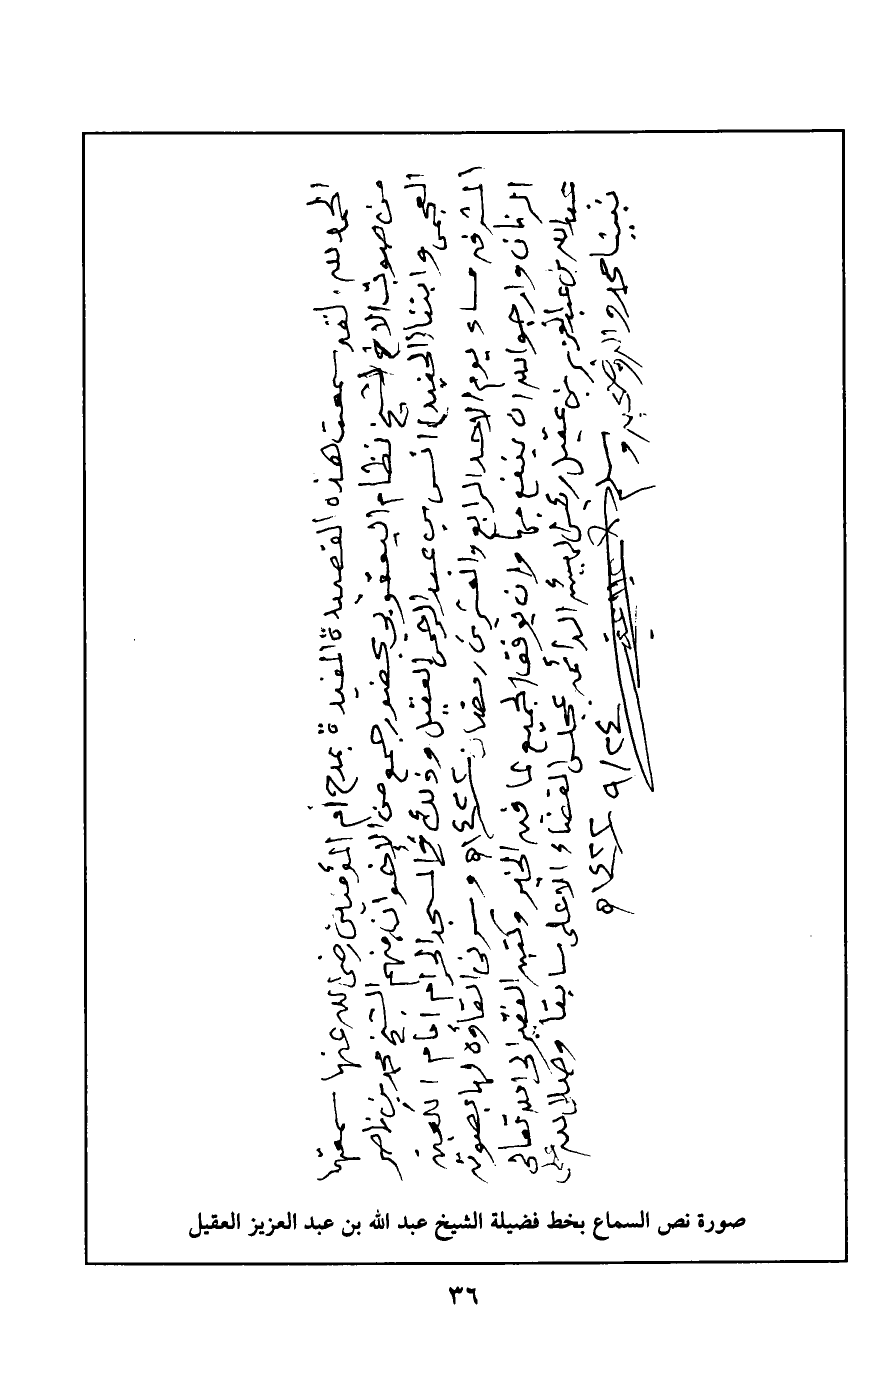 الحمد لله. لقد سمعت هذه القصيدة المفيدة بمدح أم المؤمنين رضي الله عنها سمعتها
من صوت الاخ الشيخ نظام اليعقوبي بحضور جمع من الإخوان منهم الشيخ محمد بن ناصر
العجمي وابننا (الحفيد) انس بن عبد الرحمن العقيل وذلك في المسجد الحرام امام الكعبة
المشرفه مساء يوم الاحد الرابع والعشرين رمضان ١٤٢٢هـ و سرني القاؤه لها بصوته
الرنان وارجو الله ان ينفع بها وان يوفق الجميع لما فيه الخير وكتبه الفقير الى الله تعالى
عبد الله بن عبد العزيز بن عقيل رئيس الهيئة الدائمة بمجلس القضاء الاعلى سابقا وصلى الله على
نبينا محمد وآله وصحبه وسلم
٩/٢٤ ١٤٢٢هـ
صورة نص السماع بخط فضيلة الشيخ عبد الله بن عبد العزيز العقيل
٣٦